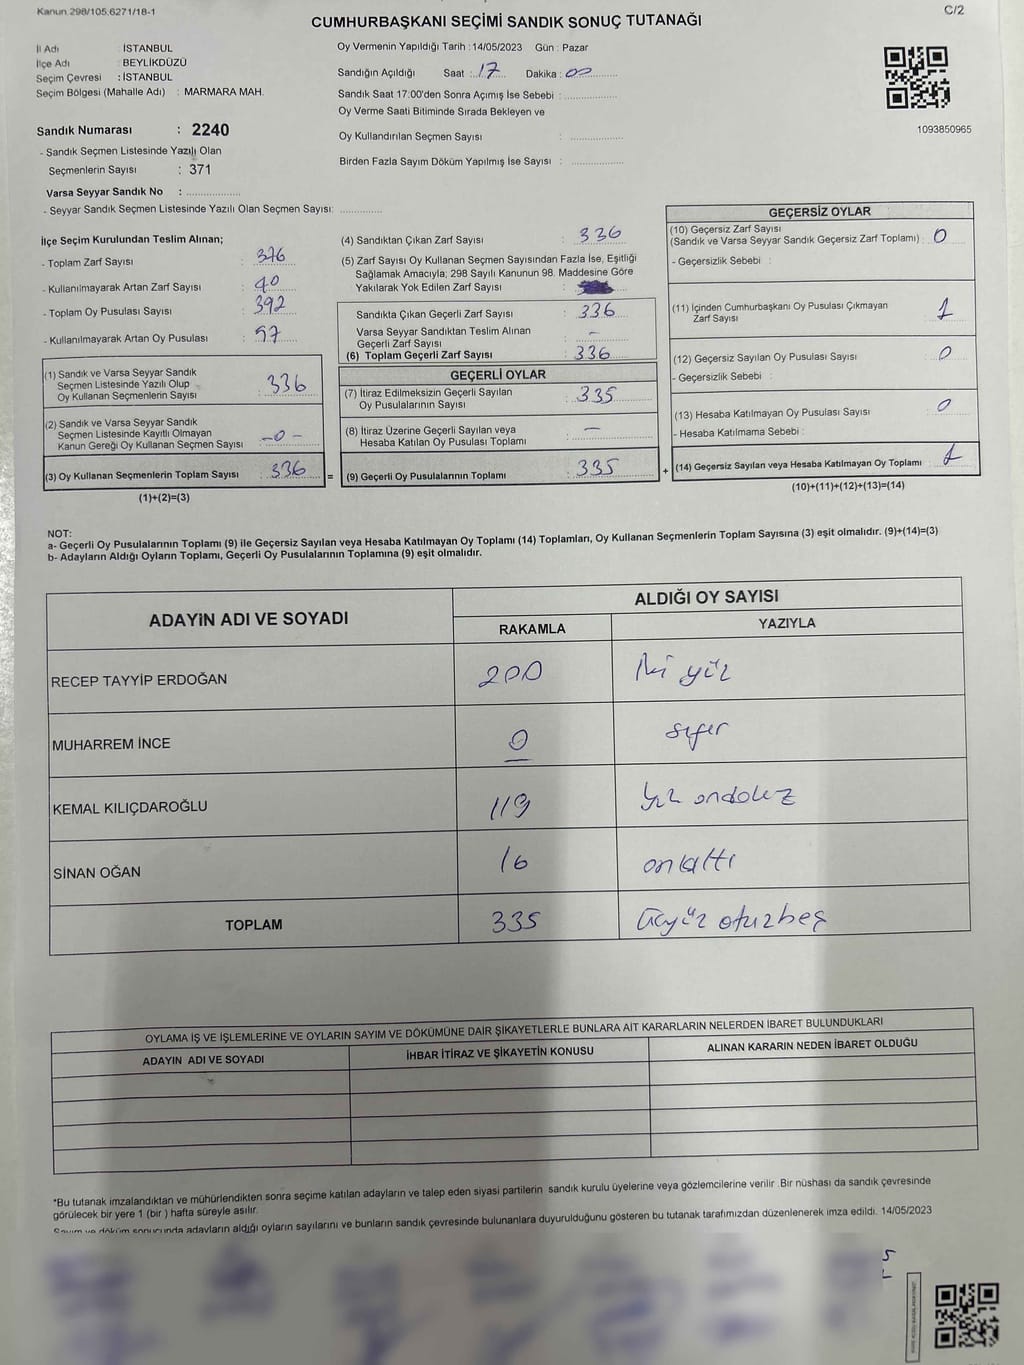 Kanun 298/105,6271/18-1
C/2
CUMHURBAŞKANI SEÇİMİ SANDIK SONUÇ TUTANAĞI
İl Adı : İSTANBUL
İlçe Adı : BEYLİKDÜZÜ
Seçim Çevresi : İSTANBUL
Seçim Bölgesi (Mahalle Adı) : MARMARA MAH.
Sandık Numarası : 2240
- Sandık Seçmen Listesinde Yazılı Olan
Seçmenlerin Sayısı : 371
Varsa Seyyar Sandık No : ..................
- Seyyar Sandık Seçmen Listesinde Yazılı Olan Seçmen Sayısı: ..............
Oy Vermenin Yapıldığı Tarih : 14/05/2023 Gün : Pazar
Sandığın Açıldığı Saat : 17 Dakika : 00
Sandık Saat 17:00'den Sonra Açımış İse Sebebi : ..................
Oy Verme Saati Bitiminde Sırada Bekleyen ve
Oy Kullandırılan Seçmen Sayısı : ..................
Birden Fazla Sayım Döküm Yapılmış İse Sayısı : ..................
1093850965
İlçe Seçim Kurulundan Teslim Alınan;
- Toplam Zarf Sayısı : 376
- Kullanılmayarak Artan Zarf Sayısı : 40
- Toplam Oy Pusulası Sayısı : 392
- Kullanılmayarak Artan Oy Pusulası : 57
(1) Sandık ve Varsa Seyyar Sandık
Seçmen Listesinde Yazılı Olup
Oy Kullanan Seçmenlerin Sayısı : 336
(2) Sandık ve Varsa Seyyar Sandık
Seçmen Listesinde Kayıtlı Olmayan
Kanun Gereği Oy Kullanan Seçmen Sayısı -0-
(3) Oy Kullanan Seçmenlerin Toplam Sayısı : 336
(1)+(2)=(3)
=
(4) Sandıktan Çıkan Zarf Sayısı : 336
(5) Zarf Sayısı Oy Kullanan Seçmen Sayısından Fazla İse, Eşitliği
Sağlamak Amacıyla; 298 Sayılı Kanunun 98. Maddesine Göre
Yakılarak Yok Edilen Zarf Sayısı :
Sandıkta Çıkan Geçerli Zarf Sayısı : 336
Varsa Seyyar Sandıktan Teslim Alınan
Geçerli Zarf Sayısı : –
(6) Toplam Geçerli Zarf Sayısı : 336
GEÇERLİ OYLAR
(7) İtiraz Edilmeksizin Geçerli Sayılan
Oy Pusulalarının Sayısı : 335
(8) İtiraz Üzerine Geçerli Sayılan veya
Hesaba Katılan Oy Pusulası Toplamı : –
(9) Geçerli Oy Pusulalarının Toplamı : 335
+
GEÇERSİZ OYLAR
(10) Geçersiz Zarf Sayısı
(Sandık ve Varsa Seyyar Sandık Geçersiz Zarf Toplamı) : 0
- Geçersizlik Sebebi :
(11) İçinden Cumhurbaşkanı Oy Pusulası Çıkmayan
Zarf Sayısı 1
(12) Geçersiz Sayılan Oy Pusulası Sayısı : 0
- Geçersizlik Sebebi :
(13) Hesaba Katılmayan Oy Pusulası Sayısı : 0
- Hesaba Katılmama Sebebi :
(14) Geçersiz Sayılan veya Hesaba Katılmayan Oy Toplamı : 1
(10)+(11)+(12)+(13)=(14)
NOT:
a- Geçerli Oy Pusulalarının Toplamı (9) ile Geçersiz Sayılan veya Hesaba Katılmayan Oy Toplamı (14) Toplamları, Oy Kullanan Seçmenlerin Toplam Sayısına (3) eşit olmalıdır. (9)+(14)=(3)
b- Adayların Aldığı Oyların Toplamı, Geçerli Oy Pusulalarının Toplamına (9) eşit olmalıdır.
ADAYIN ADI VE SOYADI
ALDIĞI OY SAYISI
RAKAMLA YAZIYLA
RECEP TAYYİP ERDOĞAN 200 iki yüz
MUHARREM İNCE 0 sıfır
KEMAL KILIÇDAROĞLU 119 yüz ondokuz
SİNAN OĞAN 16 onaltı
TOPLAM 335 üçyüz otuzbeş
OYLAMA İŞ VE İŞLEMLERİNE VE OYLARIN SAYIM VE DÖKÜMÜNE DAİR ŞİKAYETLERLE BUNLARA AİT KARARLARIN NELERDEN İBARET BULUNDUKLARI
ADAYIN ADI VE SOYADI İHBAR İTİRAZ VE ŞİKAYETİN KONUSU ALINAN KARARIN NEDEN İBARET OLDUĞU
*Bu tutanak imzalandıktan ve mühürlendikten sonra seçime katılan adayların ve talep eden siyasi partilerin sandık kurulu üyelerine veya gözlemcilerine verilir .Bir nüshası da sandık çevresinde
görülecek bir yere 1 (bir ) hafta süreyle asılır.
Sayım ve döküm sonucunda adayların aldığı oyların sayılarını ve bunların sandık çevresinde bulunanlara duyurulduğunu gösteren bu tutanak tarafımızdan düzenlenerek imza edildi. 14/05/2023